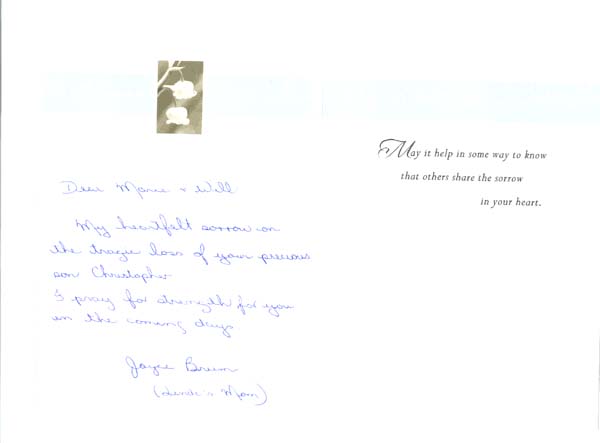 Dear Marie + Will
My heartfelt sorrow on
the tragic loss of your precious
son Christopher
I pray for strength for you
in the coming days
Joyce
Mom)
May it help in some way to know
that others share the sorrow
in your heart.